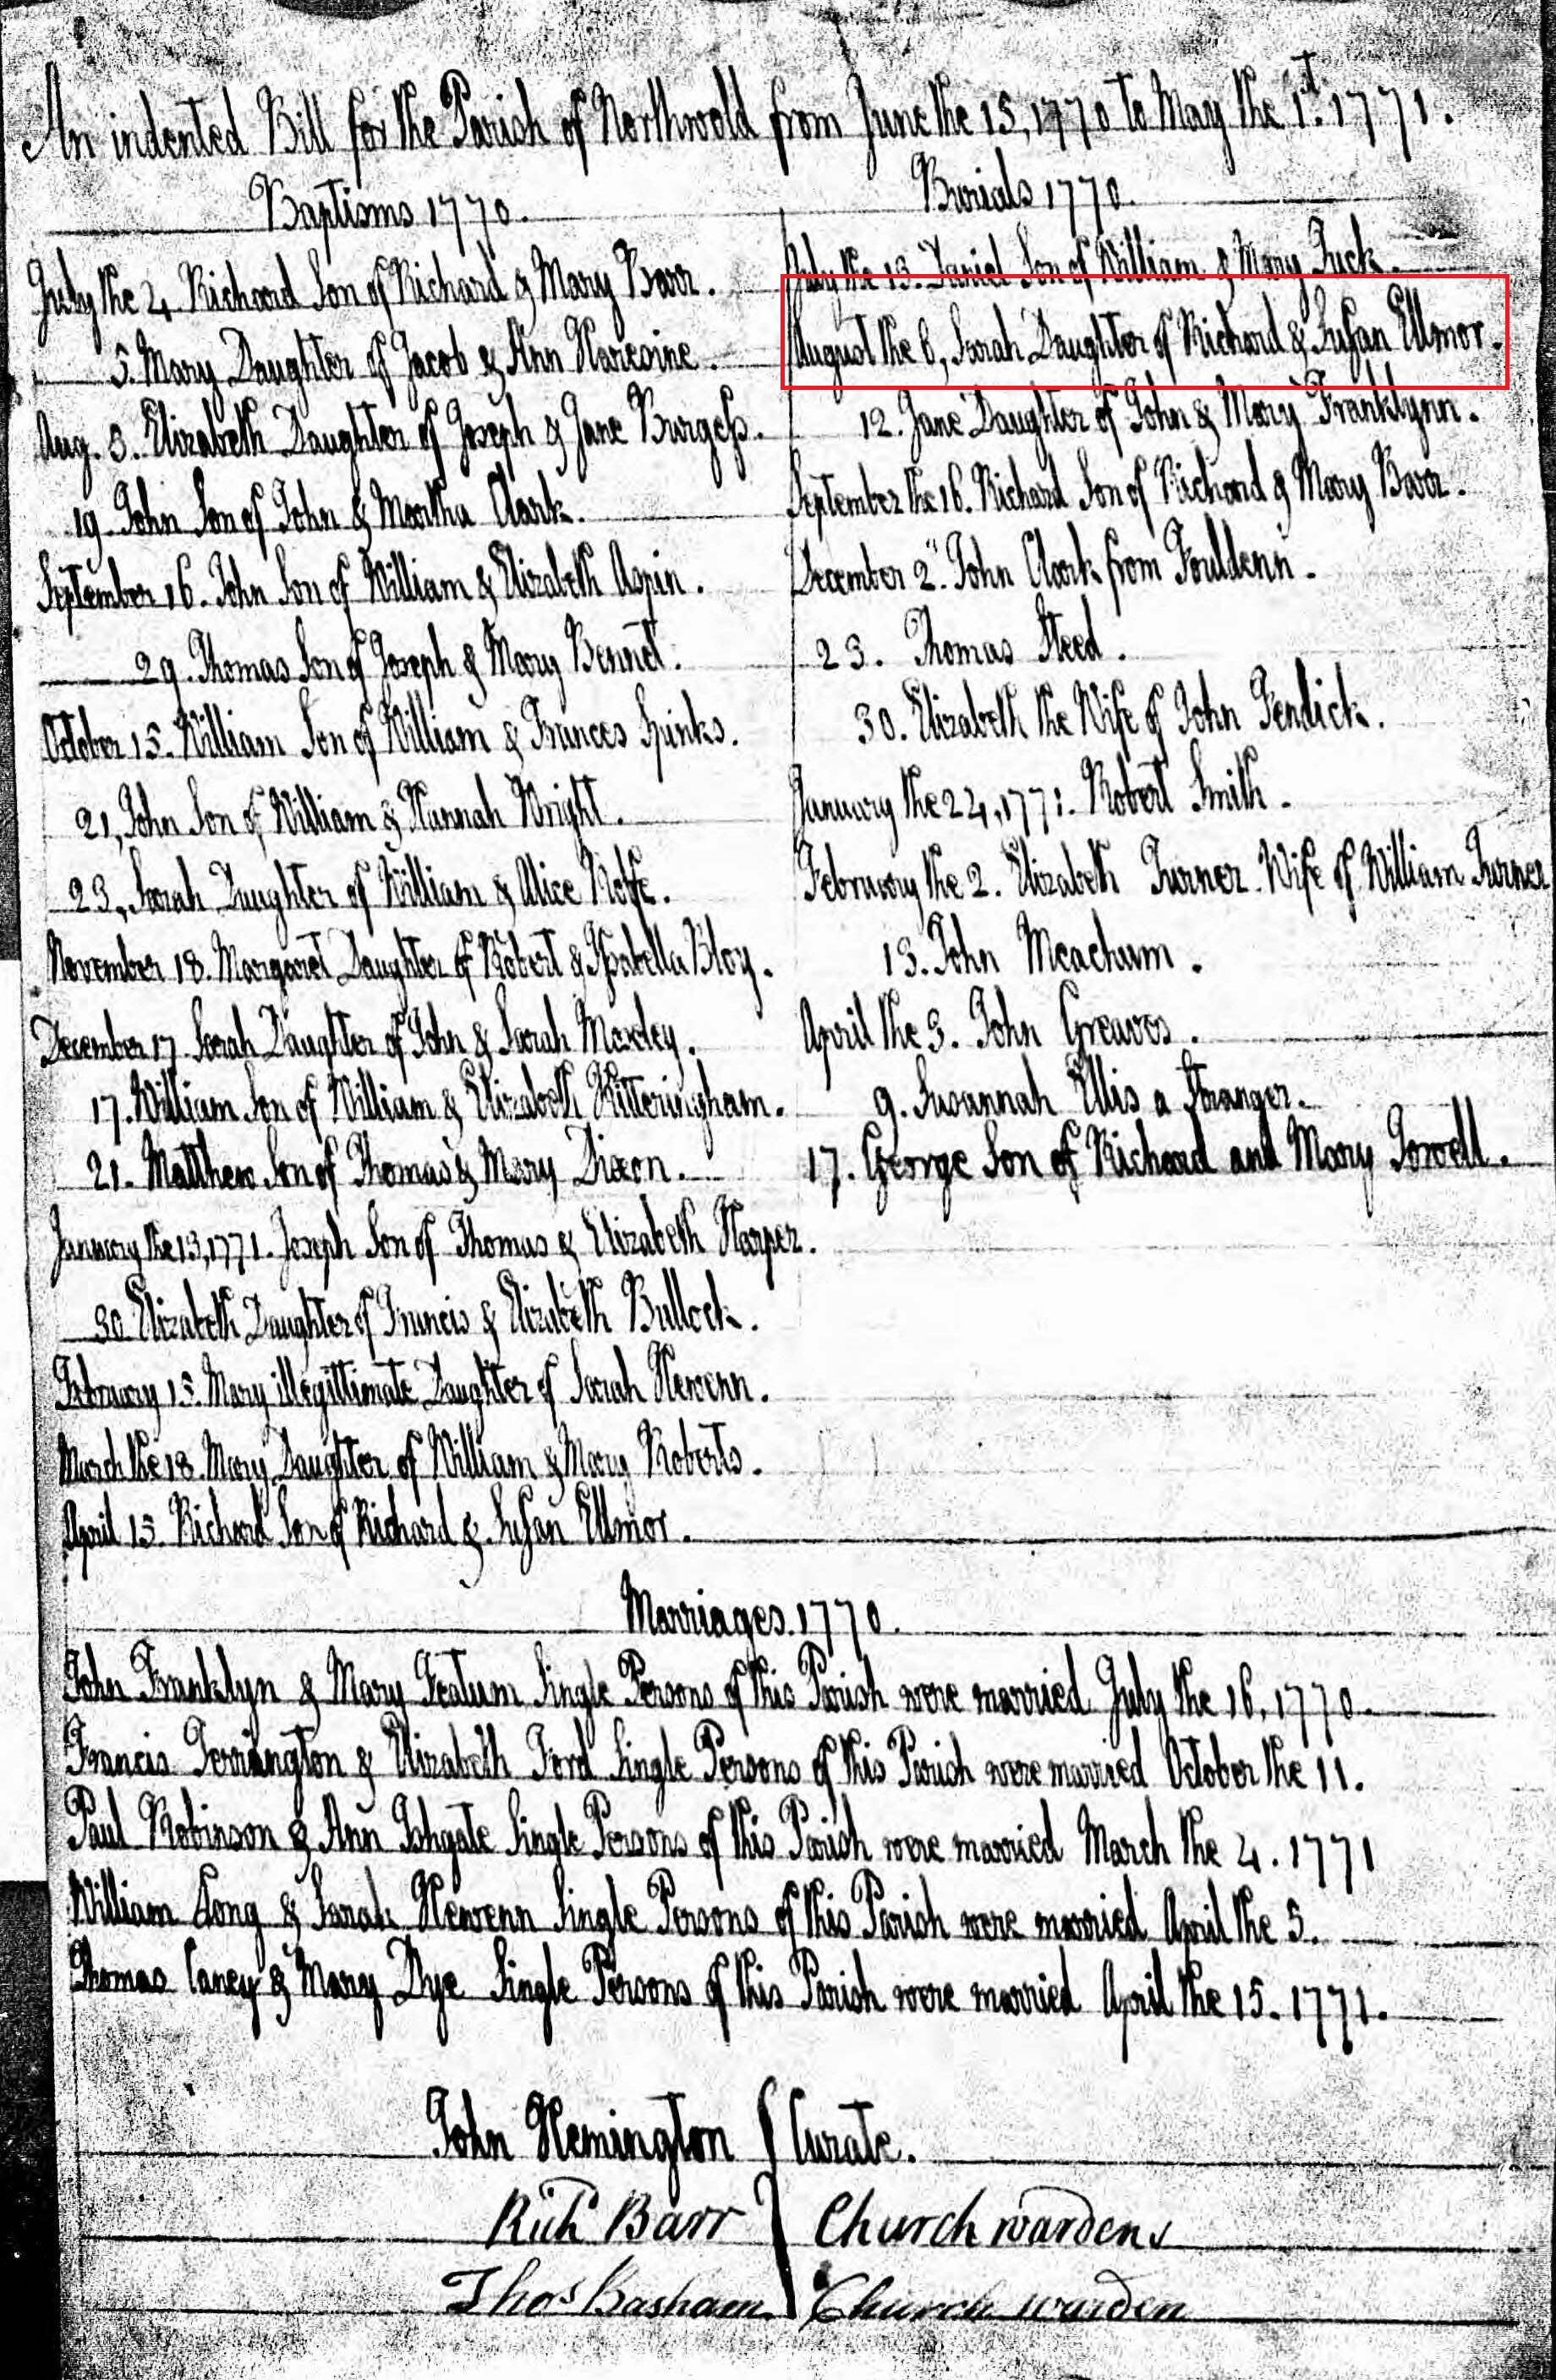 An indented Bill for the Parish of Northwold from June the 15, 1770 to May the 1st. 1771.
Baptisms 1770.
July the 4. Richard Son of Richard & Mary Barr.
5. Mary Daughter of Jacob & Ann
Aug. 5. Elizabeth Daughter of Joseph & Jane Burgess.
19. John Son of John & Martha Clark.
September 16. John Son of William & Elizabeth Aspin.
29. Thomas Son of Joseph & Mary Bennet.
October 15. William Son of William & Frances Spinks.
21, John Son of William & Hannah Wright.
23, Sarah Daughter of William & Alice Rolfe.
November 18. Margaret Daughter of Robert & Isabella Bloy.
December 17. Sarah Daughter of John & Sarah
17. William Son of William & Elizabeth Kitteringham.
21. Matthew Son of Thomas & Mary Dixon.
January the 13, 1771. Joseph Son of Thomas & Elizabeth Harper.
30 Elizabeth Daughter of Francis & Elizabeth Bullock.
February 15. Mary illegittimate Daughter of Sarah Hewenn.
March the 18. Mary Daughter of William & Mary Roberts.
April 15. Richard Son of Richard & Susan Ellmor.
Burials 1770.
July the 13. Daniel Son of William & Mary Tuck.
August the 6, Sarah Daughter of Richard & Susan Ellmor.
12. Jane Daughter of John & Mary Franklynn.
September the 16. Richard Son of Richard & Mary Barr.
December 2. John Clark from Fouldenn.
23. Thomas Steed.
30. Elizabeth the Wife of John Fendick.
January the 24, 1771. Robert Smith.
February the 2. Elizabeth Turner Wife of William Turner
13. John Meachum.
April the 3. John Greaves.
9. Susannah Ellis a Stranger.
17. George Son of Richard and Mary Powell.
Marriages. 1770.
John Franklyn & Mary Single Persons of this Parish were married July the 16, 1770.
Francis & Elizabeth Ford Single Persons of this Parish were married October the 11.
Paul Robinson & Ann Single Persons of this Parish were married March the 4. 1771
William Long & Sarah Hewenn Single Persons of this Parish were married April the 5.
Thomas Caney & Mary Dye Single Persons of this Parish were married April the 15. 1771.
John Hemington Curate.
Richd Barr Church wardens
Thos Basham Church warden